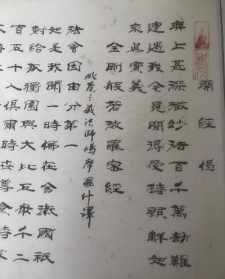 開經偈
無上甚深微妙法百千萬劫難
遭遇我今見聞得受持願解如
來真實義
金剛般若波羅蜜經
姚秦三藏法師鳩摩羅什譯
法會因由分第一
如是我聞一時佛在舍衛國祇
樹給孤獨園與大比丘眾千二
百五十人俱爾時世尊食時